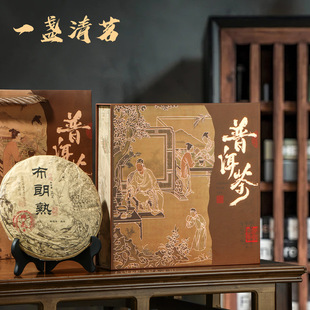 一盏清茗
普洱茶
布朗熟
普洱茶